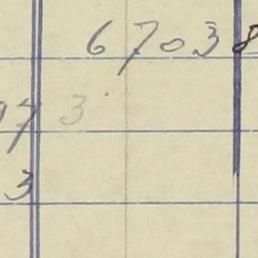 67038
97 3
3